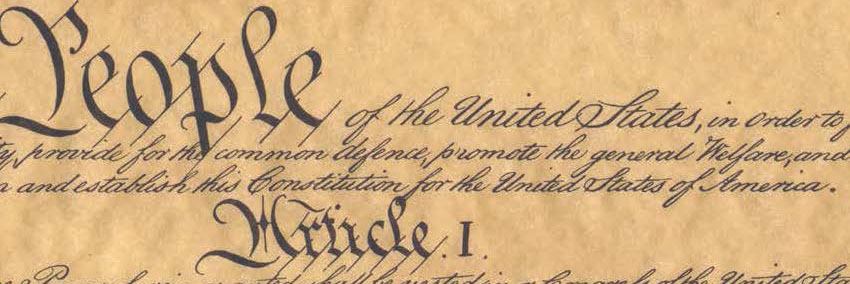 People of the United States, in order to
ty, provide for the common defence, promote the general Welfare, and
and establish this Constitution for the United States of America.
Article. I.
shall be vested in a Congress of the United